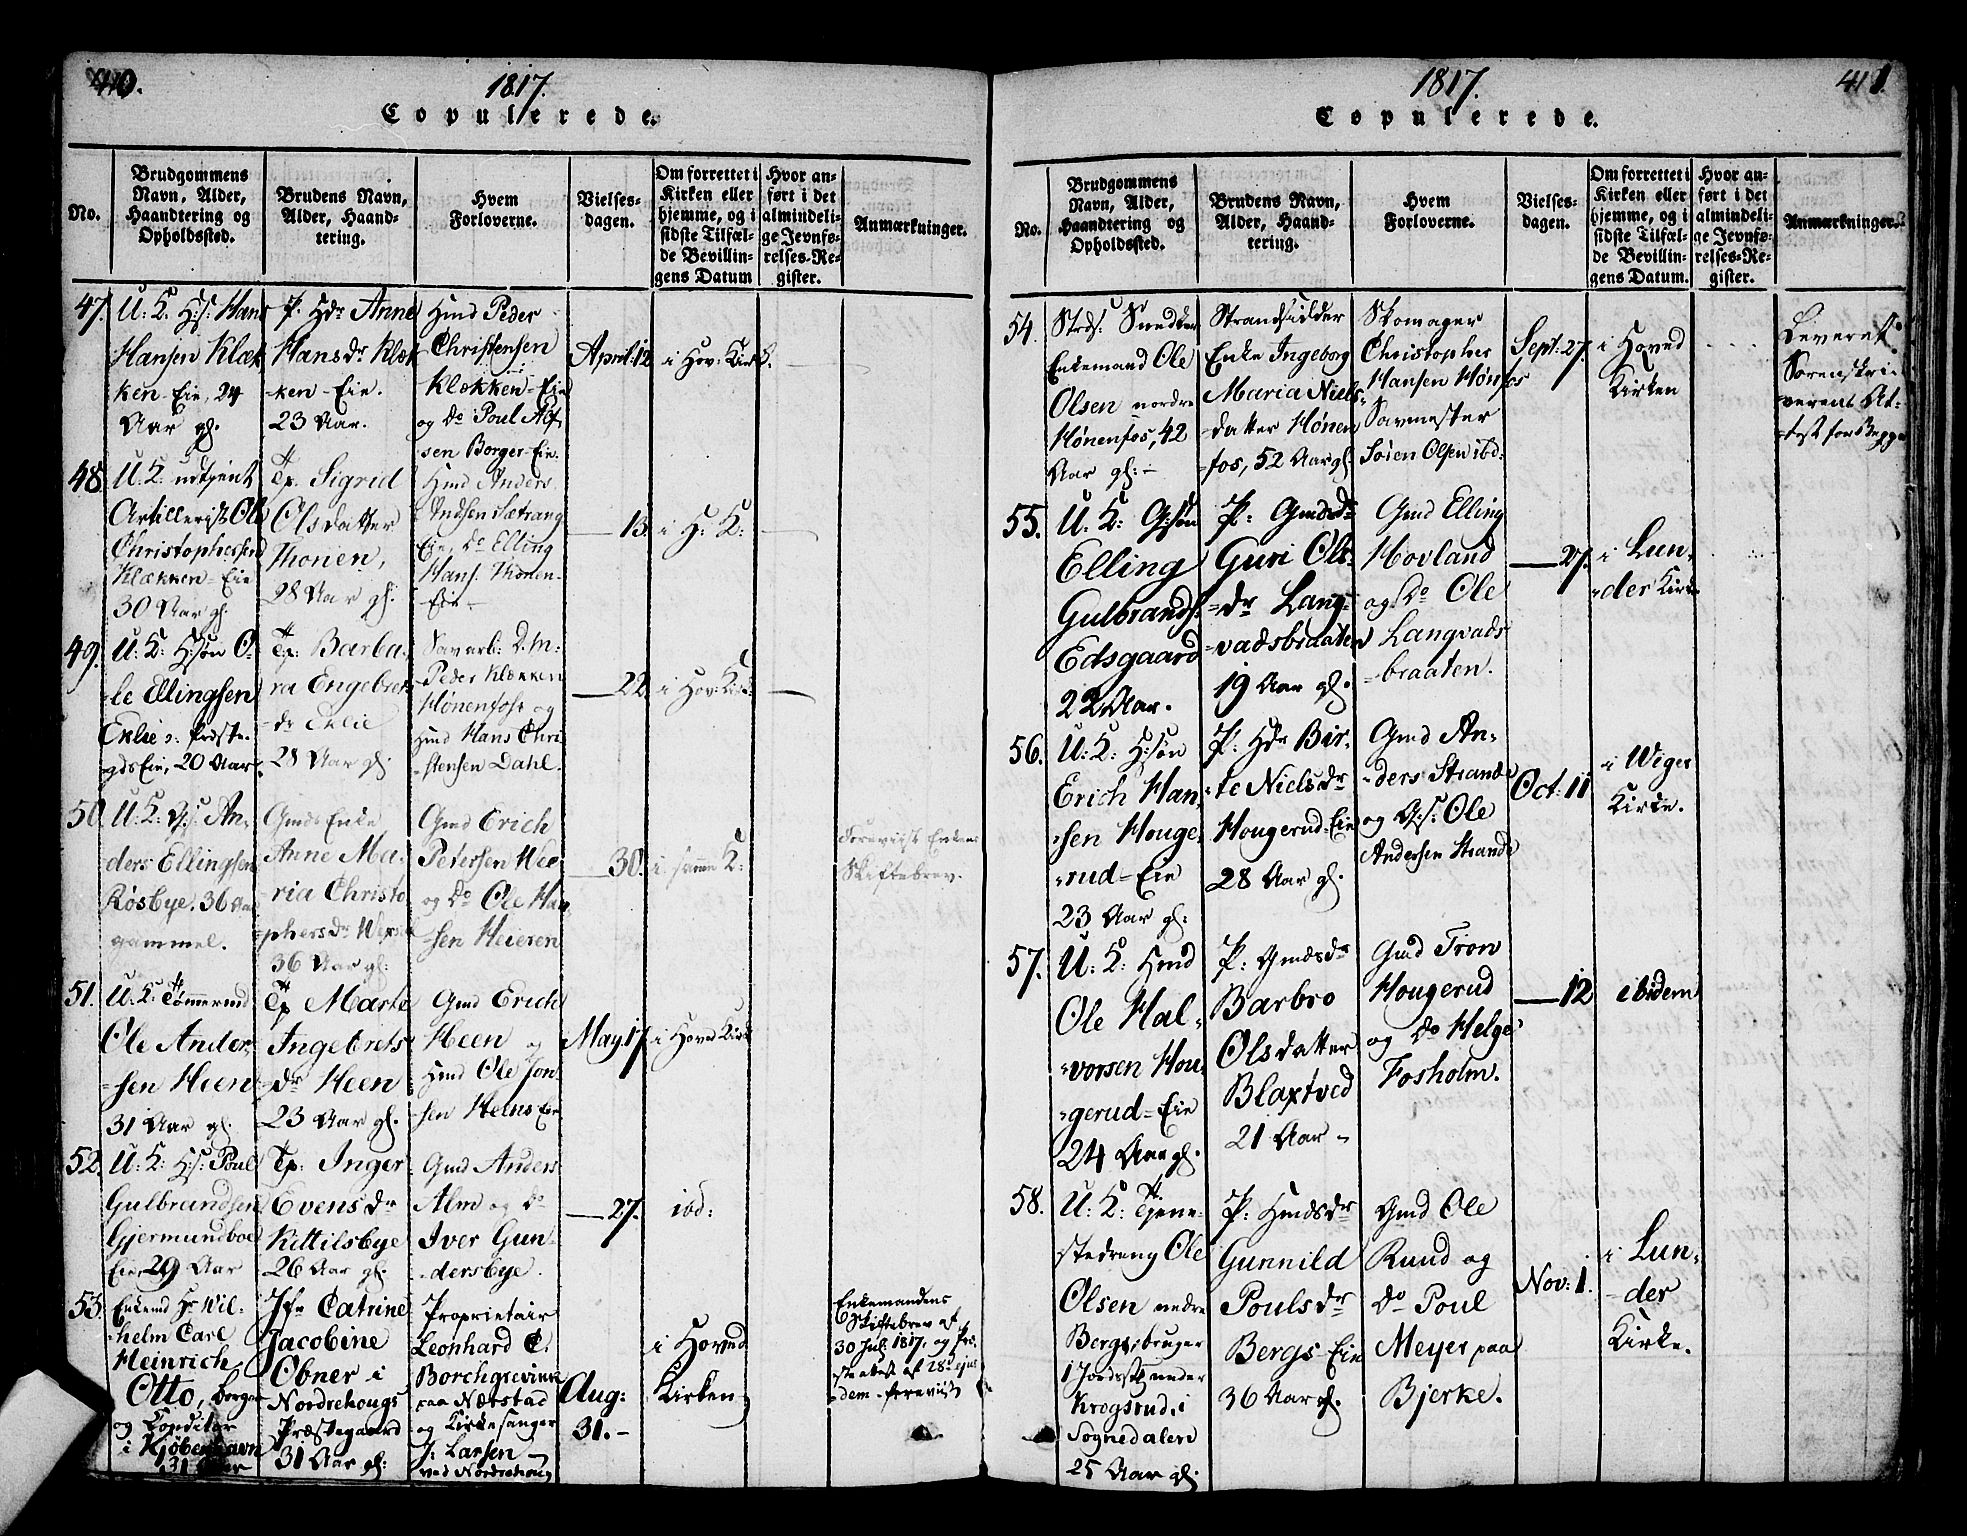 410.
1817.
Copulerede.
No.
Brudgommens
Navn, Alder,
Haandtering og
Opholdssted.
Brudens Navn,
Alder, Haand-
tering.
Hvem
Forloverne.
Vielses-
dagen.
Om forrettet i
Kirken eller
hjemme, og i
sidste Tilfæl-
de Bevillin-
gens Datum
Hvor an-
ført i det
almindeli-
ge Jevnfø-
relses-Re-
gister.
Anmærkninger.
47.
U: K. H:s: Hans
Hansen Klæk
ken-Eie, 24
Aar gl.
P. Hdr Anne
Hansdr Klæk
-ken-Eie.
23 Aar.
Hmd Peder
Christensen
Klækken-Eie
og Do Poul
sen Borger-Eie.
April: 12
i Hov: Kirk:
48.
U: K. udtjent
Artillerist Ole
Christophersen
Klækken-Eie
30 Aar gl.
Tp. Sigrid
Olsdatter
Thonen,
28 Aar gl.
Hmd Anders
Sætrang
Eie, Do Elling
Hans. Thonen-
-Eie-
13.
i H: K:
49.
U: K: H:søn O-
-le Ellingsen
Eklie Præste-
gds Eie, 20 Aar.
Tp: Barba-
ra Engebrets
-dr Eklie
28 Aar gl.
Savarb: D. M:
Peder Klækken
Hønenfoss og
Hmd Hans Chri
-stensen Dahl.
22.
i Hov: Kirk:
50
U: K: G:s: An-
ders Ellingsen
Røsbye. 36 Aar
gammel.
Gmds Enke
Anne Ma-
ria Christo
-phersdr
36 Aar gl:
Gmd Erich
Petersen Hee
og Do Ole Han
-sen Heieren
30.
i samme K:
Foreviist Enkens
Skiftebrev.
51.
U: K: Tømmermd
Ole Ander-
-sen Heen
31 Aar gl.
Tp Marte
Ingebrets
-dr Heen
23 Aar gl.
Gmd Erich
Heen og
Hmd Ole Jon-
sen Heens Eie
May 17.
i Hoved Kirk
52.
U: K: H:s: Poul
Gulbrandsen
Gjermundboe
Eie 29 Aar
Tp: Inger
Evensdr
Kittilsbye
26 Aar gl.
Gmd Anders
Alm og Do
Iver Gun-
-dersbye.
27.
ibd:
53.
Enkemd Hr Wil-
-helm Carl
Heinrich
Otto, borger
og Conditor
i Kjøbenhavn
31 Aar
Jfr Catrine
Jacobine
Obner i
Nordrehougs
Præstegaard
31 Aar gl:
Proprietair
Leonhard C.
Borchgrevink
paa Næstad
og Kirkesanger
J: Larsen
ved Nordrehoug
Aug:
31.-
i Hoved
Kirken
Enkemandens
Skiftebrev af
30 Jul: 1817, og
af 28d ejus
dem foreviist
1817.
411.
Copulerede.
No.
Brudgommens
Navn, Alder,
Haandtering og
Opholdssted.
Brudens Navn,
Alder, Haand-
tering.
Hvem
Forloverne.
Vielses-
dagen.
Om forrettet i
Kirken eller
hjemme, og i
sidste Tilfæl-
de Bevillin-
gens Datum.
Hvor an-
ført i det
almindeli-
ge Jevnfø-
relses-Re-
gister.
Anmærkninger.
54.
Strds: Snedker
Enkemand Ole
Olsen nordre
Hønenfos, 42
Aar gl:-
Strandsidder
Enke Ingeborg
Maria Niels-
-datter Hønen
fos, 52 Aar gl.
Skomager
Christopher
Hansen Hønfos
Savmester
Søren Olsen ibd:
Sept: 27.
i Hoved
Kirken
Leveret
Sorenskri-
-verens At-
-test for Begge
55.
U: K: G:søn
Elling
Gulbrands:
Edsgaard
22 Aar.
P: Gmdsdr
Guri Ols-
-dr Lang-
-vadsbraaten
19 Aar gl.
Gmd Elling
Hovland
og Do Ole
Langvads-
-braaten.
27.
i Lun-
-der Kirke
56.
U: K: H:søn
Erich Han-
-sen Houge-
-rud-Eie
23 Aar gl:
P: Hdr Bir-
-te Nielsdr
Hougerud-Eie
28 Aar gl.
Gmd An-
-ders Strande
og G:s: Ole
Andersen Strande
Oct: 11
i Wiger
Kirke.
57.
U: K: Hmd
Ole Hal-
-vorsen Hou-
-gerud-Eie
24 Aar gl.
P: Gmdsdr
Barbro
Olsdatter
Blaxtved
21 Aar-
Gmd Tron
Hougerud
og Do Helge
Fosholm.
12
ibidem
58.
U: K: Tjene-
stedreng Ole
Olsen nedre
Berg, bruger
1 Jordstk under
Krogsrud, i
Sognedalen
25 Aar gl.
P: Hmdsdr
Gunnild
Poulsdr
Bergs-Eie
36 Aar gl.
Gmd Ole
Ruud og
Do Poul
Meyer paa
Bjerke.
Nov: 1.
i Lun-
-der
Kirke.